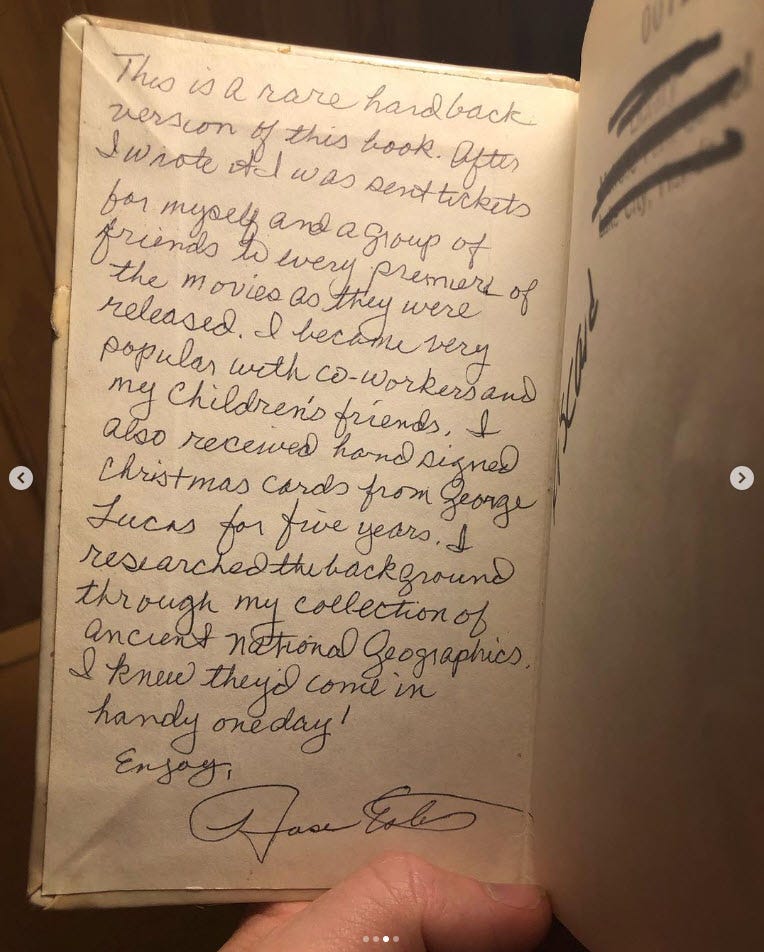 This is a rare hardback
version of this book. After
I wrote it I was sent tickets
for myself and a group of
friends to every premiere of
the movies as they were
released. I became very
popular with co-workers and
my children's friends. I
also received hand signed
Christmas cards from George
Lucas for five years. I
researched the background
through my collection of
ancient National Geographics.
I knew they'd come in
handy one day!
Enjoy,
Rose Estes
Discard